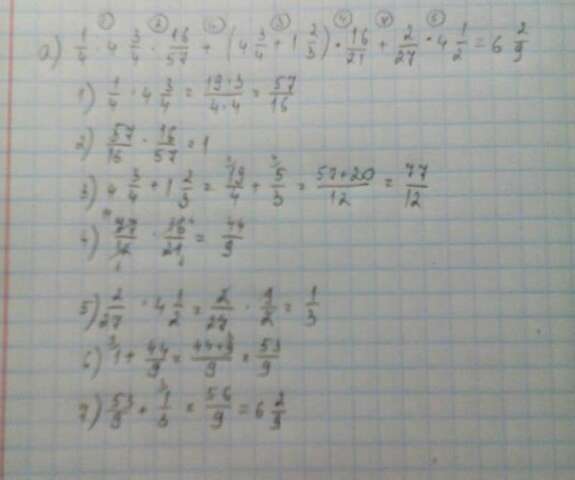 а) 1/4 · 4 3/4 · 16/57 + (4 3/4 + 1 2/3) · 16/21 + 2/27 · 4 1/2 = 6 2/9
1) 1/4 · 4 3/4 = 19·3/4·4 = 57/16
2) 57/16 · 16/57 = 1
3) 4 3/4 + 1 2/3 = 19/4 + 5/3 = 57+20/12 = 77/12
4) 77/12 · 16/21 = 44/9
5) 2/27 · 4 1/2 = 2/27 · 9/2 = 1/3
6) 1 + 44/9 = 44+9/9 = 53/9
7) 53/9 + 1/3 = 56/9 = 6 2/9